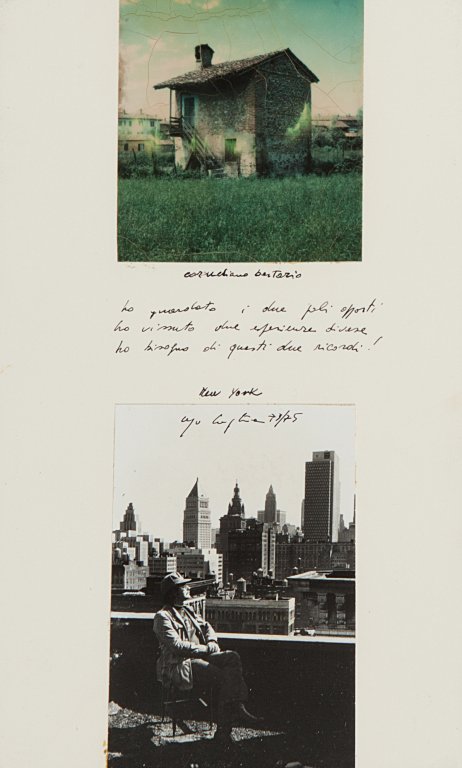 cornegliano bertario
ho guardato i due poli opposti
ho vissuto due esperienze diverse
ho bisogno di questi due ricordi!
New York
73/75